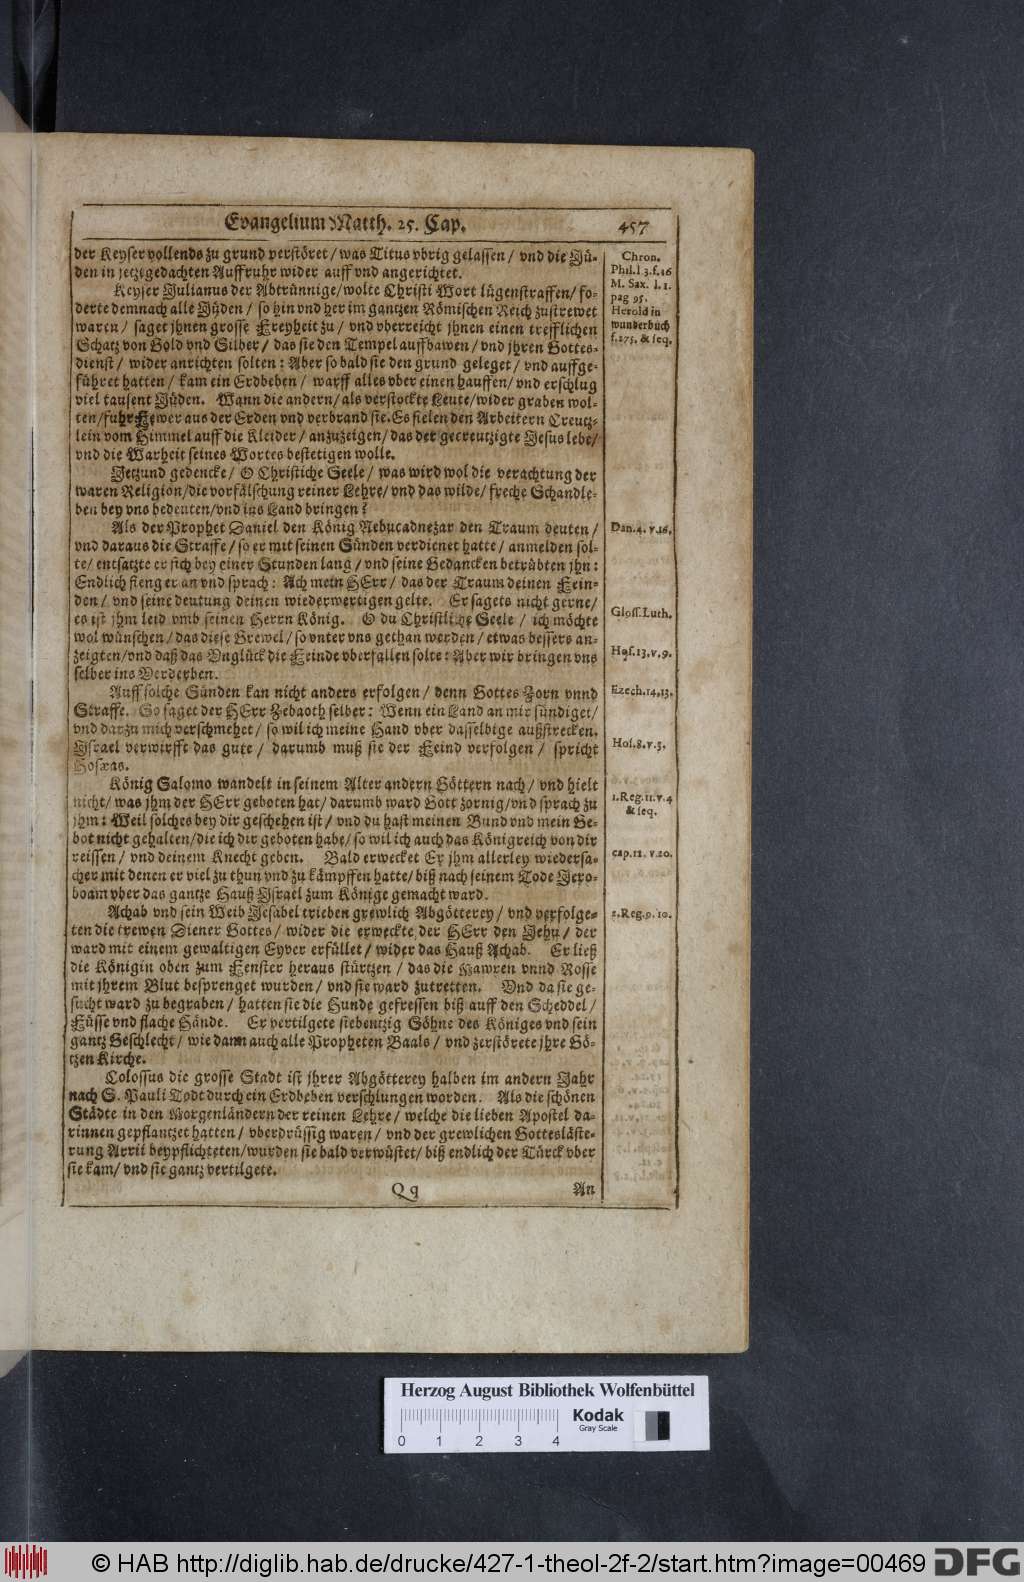 Evangelium Matth. 25. Cap. 457
der Keyser vollends zu grund verstöret / was Titus vbrig gelassen / vnd die Jü-
den in jetztgedachten Auffruhr wider auff vnd angerichtet.
Keyser Julianus der Abtrünnige / wolte Christi Wort lügenstraffen / fo-
derte demnach alle Jüden / so hin vnd her im gantzen Römischen Reich zustrewet
waren / saget jhnen grosse Freyheit zu / vnd vberreicht jhnen einen trefflichen
Schatz von Gold vnd Silber / das sie den Tempel auffbawen / vnd jhren Gottes-
dienst / wider anrichten solten: Aber so bald sie den grund geleget / vnd auffge-
führet hatten / kam ein Erdbeben / warff alles vber einen hauffen / vnd erschlug
viel tausent Jüden. Wann die andern / als verstockte Leute / wider graben wol-
ten / fuhr Fewer aus der Erden vnd verbrand sie. Es fielen den Arbeitern Creutz-
lein vom Himmel auff die Kleider / anzuzeigen / das der gecreutzigte Jesus lebe /
vnd die Warheit seines Wortes bestetigen wolle.
Jetzund gedencke / O Christiche Seele / was wird wol die verachtung der
waren Religion / die vorfälschung reiner Lehre / vnd das wilde / freche Schandle-
ben bey vns bedeuten / vnd ins Land bringen?
Als der Prophet Daniel den König Nebucadnezar den Traum deuten /
vnd daraus die Straffe / so er mit seinen Sünden verdienet hatte / anmelden sol-
te / entsatzte er sich bey einer Stunden lang / vnd seine Gedancken betrübten jhn:
Endlich fieng er an vnd sprach: Ach mein HErr / das der Traum deinen Fein-
den / vnd seine deutung deinen wiederwertigen gelte. Er sagets nicht gerne /
es ist jhm leid vmb seinen Herrn König. O du Christliche Seele / ich möchte
wol wünschen / das diese Grewel / so vnter vns gethan werden / etwas bessers an-
zeigten / vnd daß das Vnglück die Feinde vberfallen solte: Aber wir bringen vns
selber ins Verderben.
Auff solche Sünden kan nicht anders erfolgen / denn Gottes Zorn vnnd
Straffe. So saget der HErr Zebaoth selber: Wenn ein Land an mir sündiget /
vnd darzu mich verschmehet / so wil ich meine Hand vber dasselbige außstrecken.
Israel verwirfft das gute / darumb muß sie der Feind verfolgen / spricht
Hoseas.
König Salomo wandelt in seinem Alter andern Göttern nach / vnd hielt
nicht / was jhm der HErr geboten hat / darumb ward Gott zornig / vnd sprach zu
jhm: Weil solches bey dir geschehen ist / vnd du hast meinen Bund vnd mein Ge-
bot nicht gehalten / die ich dir geboten habe / so wil ich auch das Königreich von dir
reissen / vnd deinem Knecht geben. Bald erwecket Er jhm allerley wiedersa-
cher mit denen er viel zu thun vnd zu kämpffen hatte / biß nach seinem Tode Jero-
boam vber das gantze Hauß Israel zum Könige gemacht ward.
Achab vnd sein Weib Jesabel trieben grewlich Abgötterey / vnd verfolge-
ten die trewen Diener Gottes / wider die erweckte der HErr den Jehu / der
ward mit einem gewaltigen Eyver erfüllet / wider das Hauß Achab. Er ließ
die Königin oben zum Fenster heraus stürtzen / das die Mawren vnnd Rosse
mit jhrem Blut besprenget wurden / vnd sie ward zutretten. Vnd da sie ge-
sucht ward zu begraben / hatten sie die Hunde gefressen biß auff den Scheddel /
Füsse vnd flache Hände. Er vertilgete siebentzig Söhne des Königes vnd sein
gantz Geschlecht / wie dann auch alle Propheten Baals / vnd zerstörete jhre Gö-
tzen Kirche.
Colossus die grosse Stadt ist jhrer Abgötterey halben im andern Jahr
nach S. Pauli Todt durch ein Erdbeben verschlungen worden. Als die schönen
Städte in den Morgenländern der reinen Lehre / welche die lieben Apostel da-
rinnen gepflantzet hatten / vberdrüssig waren / vnd der grewlichen Gotteslästе-
rung Arrii beypflichteten / wurden sie bald verwüstet / biß endlich der Türck vber
sie kam / vnd sie gantz vertilgete.
Qq An
Chron.
Phil. l 3. f. 16
M. Sax. l. 1.
pag 95.
Herold in
wunderbuch
f. 175. & seq.
Dan. 4. v. 16.
Gloss. Luth.
Hos. 13. v. 9.
Ezech. 14, 13.
Hos. 8. v. 3.
1. Reg. 11. v. 4
& seq.
cap. 12. v. 20.
2. Reg. 9. 10.
Herzog August Bibliothek Wolfenbüttel
0 1 2 3 4
Kodak
Gray Scale
© HAB http://diglib.hab.de/drucke/427-1-theol-2f-2/start.htm?image=00469 DFG